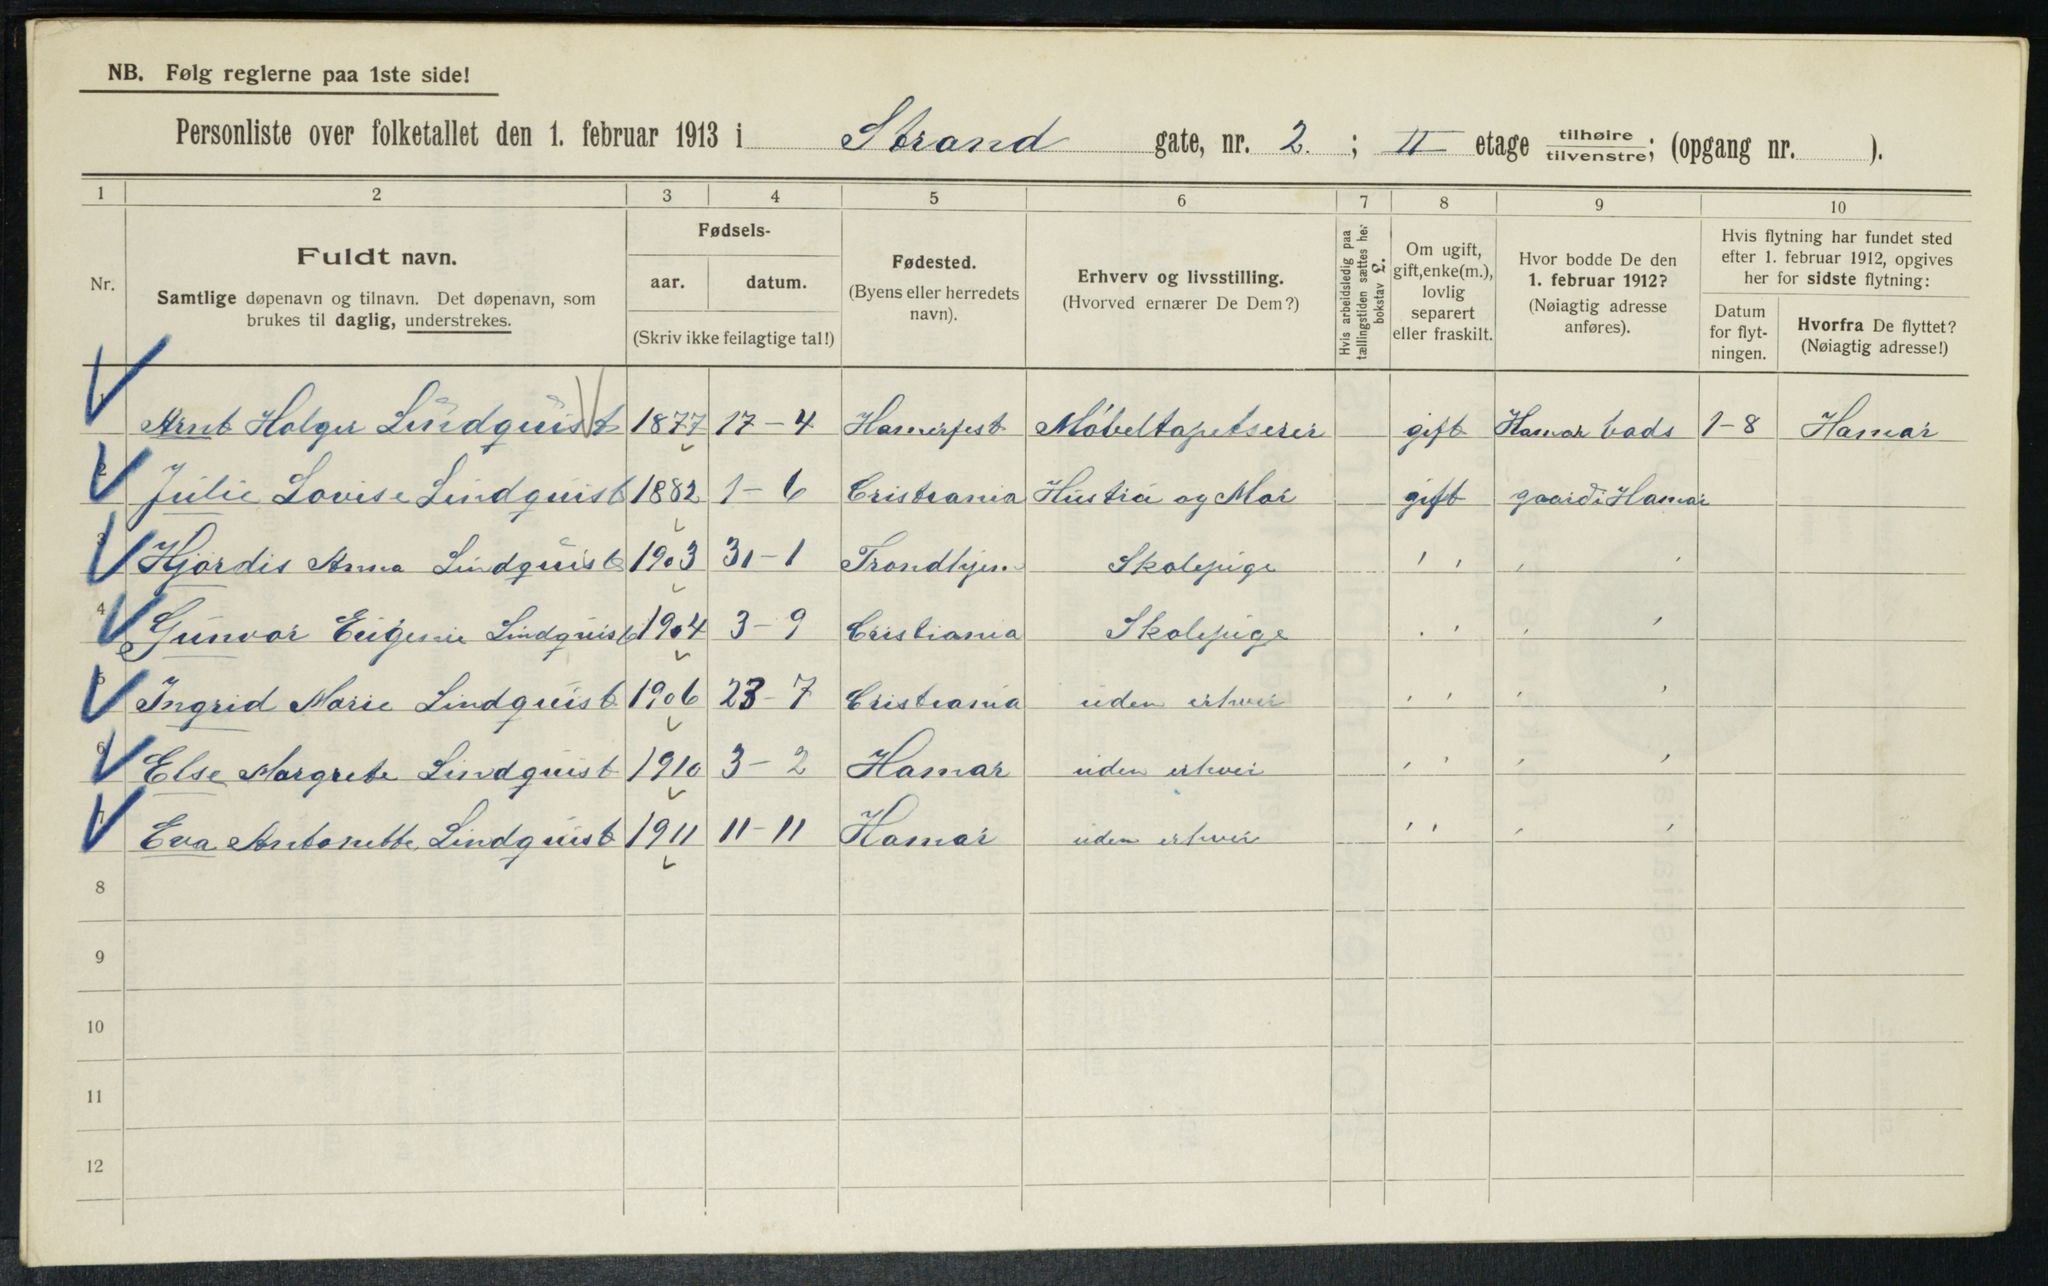 NB. Følg reglerne paa 1ste side!
Personliste over folketallet den 1. februar 1913 i Strand gate, nr. 2. ; II etage tilhøire/tilvenstre; (opgang nr. ).
1 2 3 4 5 6 7 8 9 10
Nr.
Fuldt navn.
Samtlige døpenavn og tilnavn. Det døpenavn, som
brukes til daglig, understrekes.
Fødsels-
aar. datum.
(Skriv ikke feilagtige tal!)
Fødested.
(Byens eller herredets
navn).
Erhverv og livsstilling.
(Hvorved ernærer De Dem?)
Hvis arbeidsledig paa
tællingstiden sættes her
bokstav L.
Om ugift,
gift, enke(m.),
lovlig
separert
eller fraskilt.
Hvor bodde De den
1. februar 1912?
(Nøiagtig adresse
anføres).
Hvis flytning har fundet sted
efter 1. februar 1912, opgives
her for sidste flytning:
Datum
for flyt-
ningen.
Hvorfra De flyttet?
(Nøiagtig adresse!)
1 Arnt Holger Lindquist 1877 17-4 Hamerfest Møbeltapetserer gift Hamar bads 1-8 Hamar
2 Julie Lovise Lindquist 1882 1-6 Cristiania Hustru og Mor gift gaard i Hamar
3 Hjørdis Anna Lindquist 1903 31-1 Trondhjem Skolepige " " "
4 Gunvor Eugenie Lindquist 1904 3-9 Cristiania Skolepige " " "
5 Ingrid Marie Lindquist 1906 23-7 Cristiania uden erhver " " "
6 Else Margrete Lindquist 1910 3-2 Hamar uden erhver " " "
7 Eva Antonette Lindquist 1911 11-11 Hamar uden erhver " " "
8
9
10
11
12